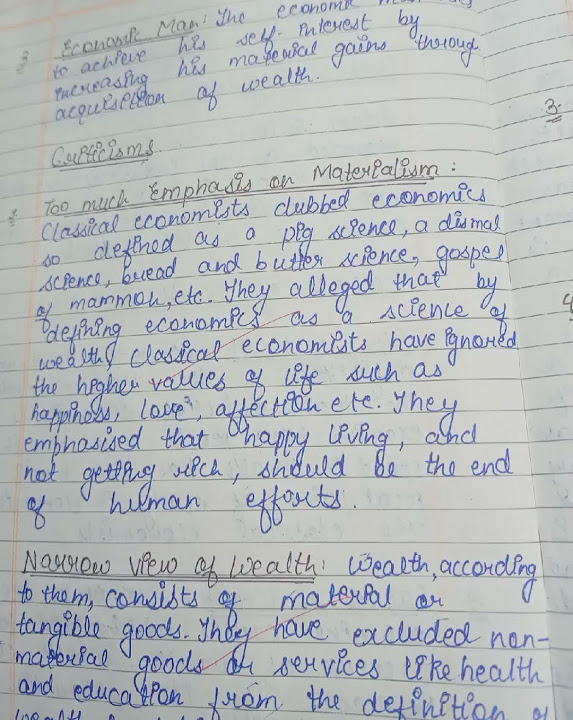 3 Economic Man: The economic
to achieve his self-interest by
increasing his material gains throug
acquisition of wealth.
3.
Criticisms
Too much Emphasis on Materialism :
Classical economists dubbed economics
so defined as a pig science, a dismal
science, bread and butter science, gospel
of mammon, etc. They alleged that by
defining economics as a science of
wealth, classical economists have ignored
4
the higher values of life such as
happiness, love, affection etc. They
emphasised that happy living, and
not getting rich, should be the end
of human efforts.
Narrow view of wealth: Wealth, according
to them, consists of material or
tangible goods. They have excluded non-
material goods or services like health
and education from the definition of